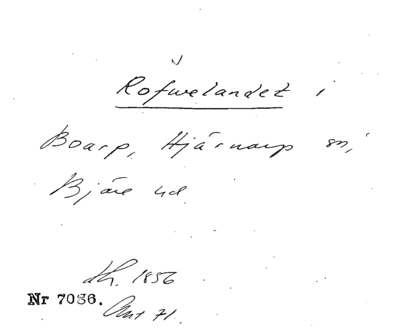 Rofwelandet i
Boarp, Hjärnarp sn,
Bjäre hd
1856
Nr 7086.
Ant 71.